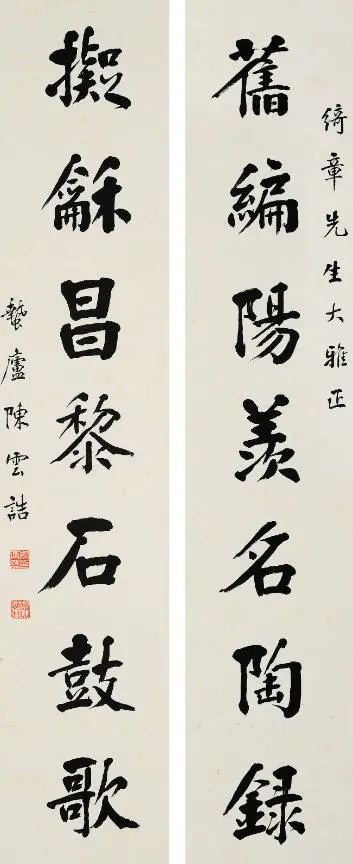 綺章先生大雅正
舊編陽羨名陶錄
擬龢昌黎石鼓歌
蟄廬陳雲誥